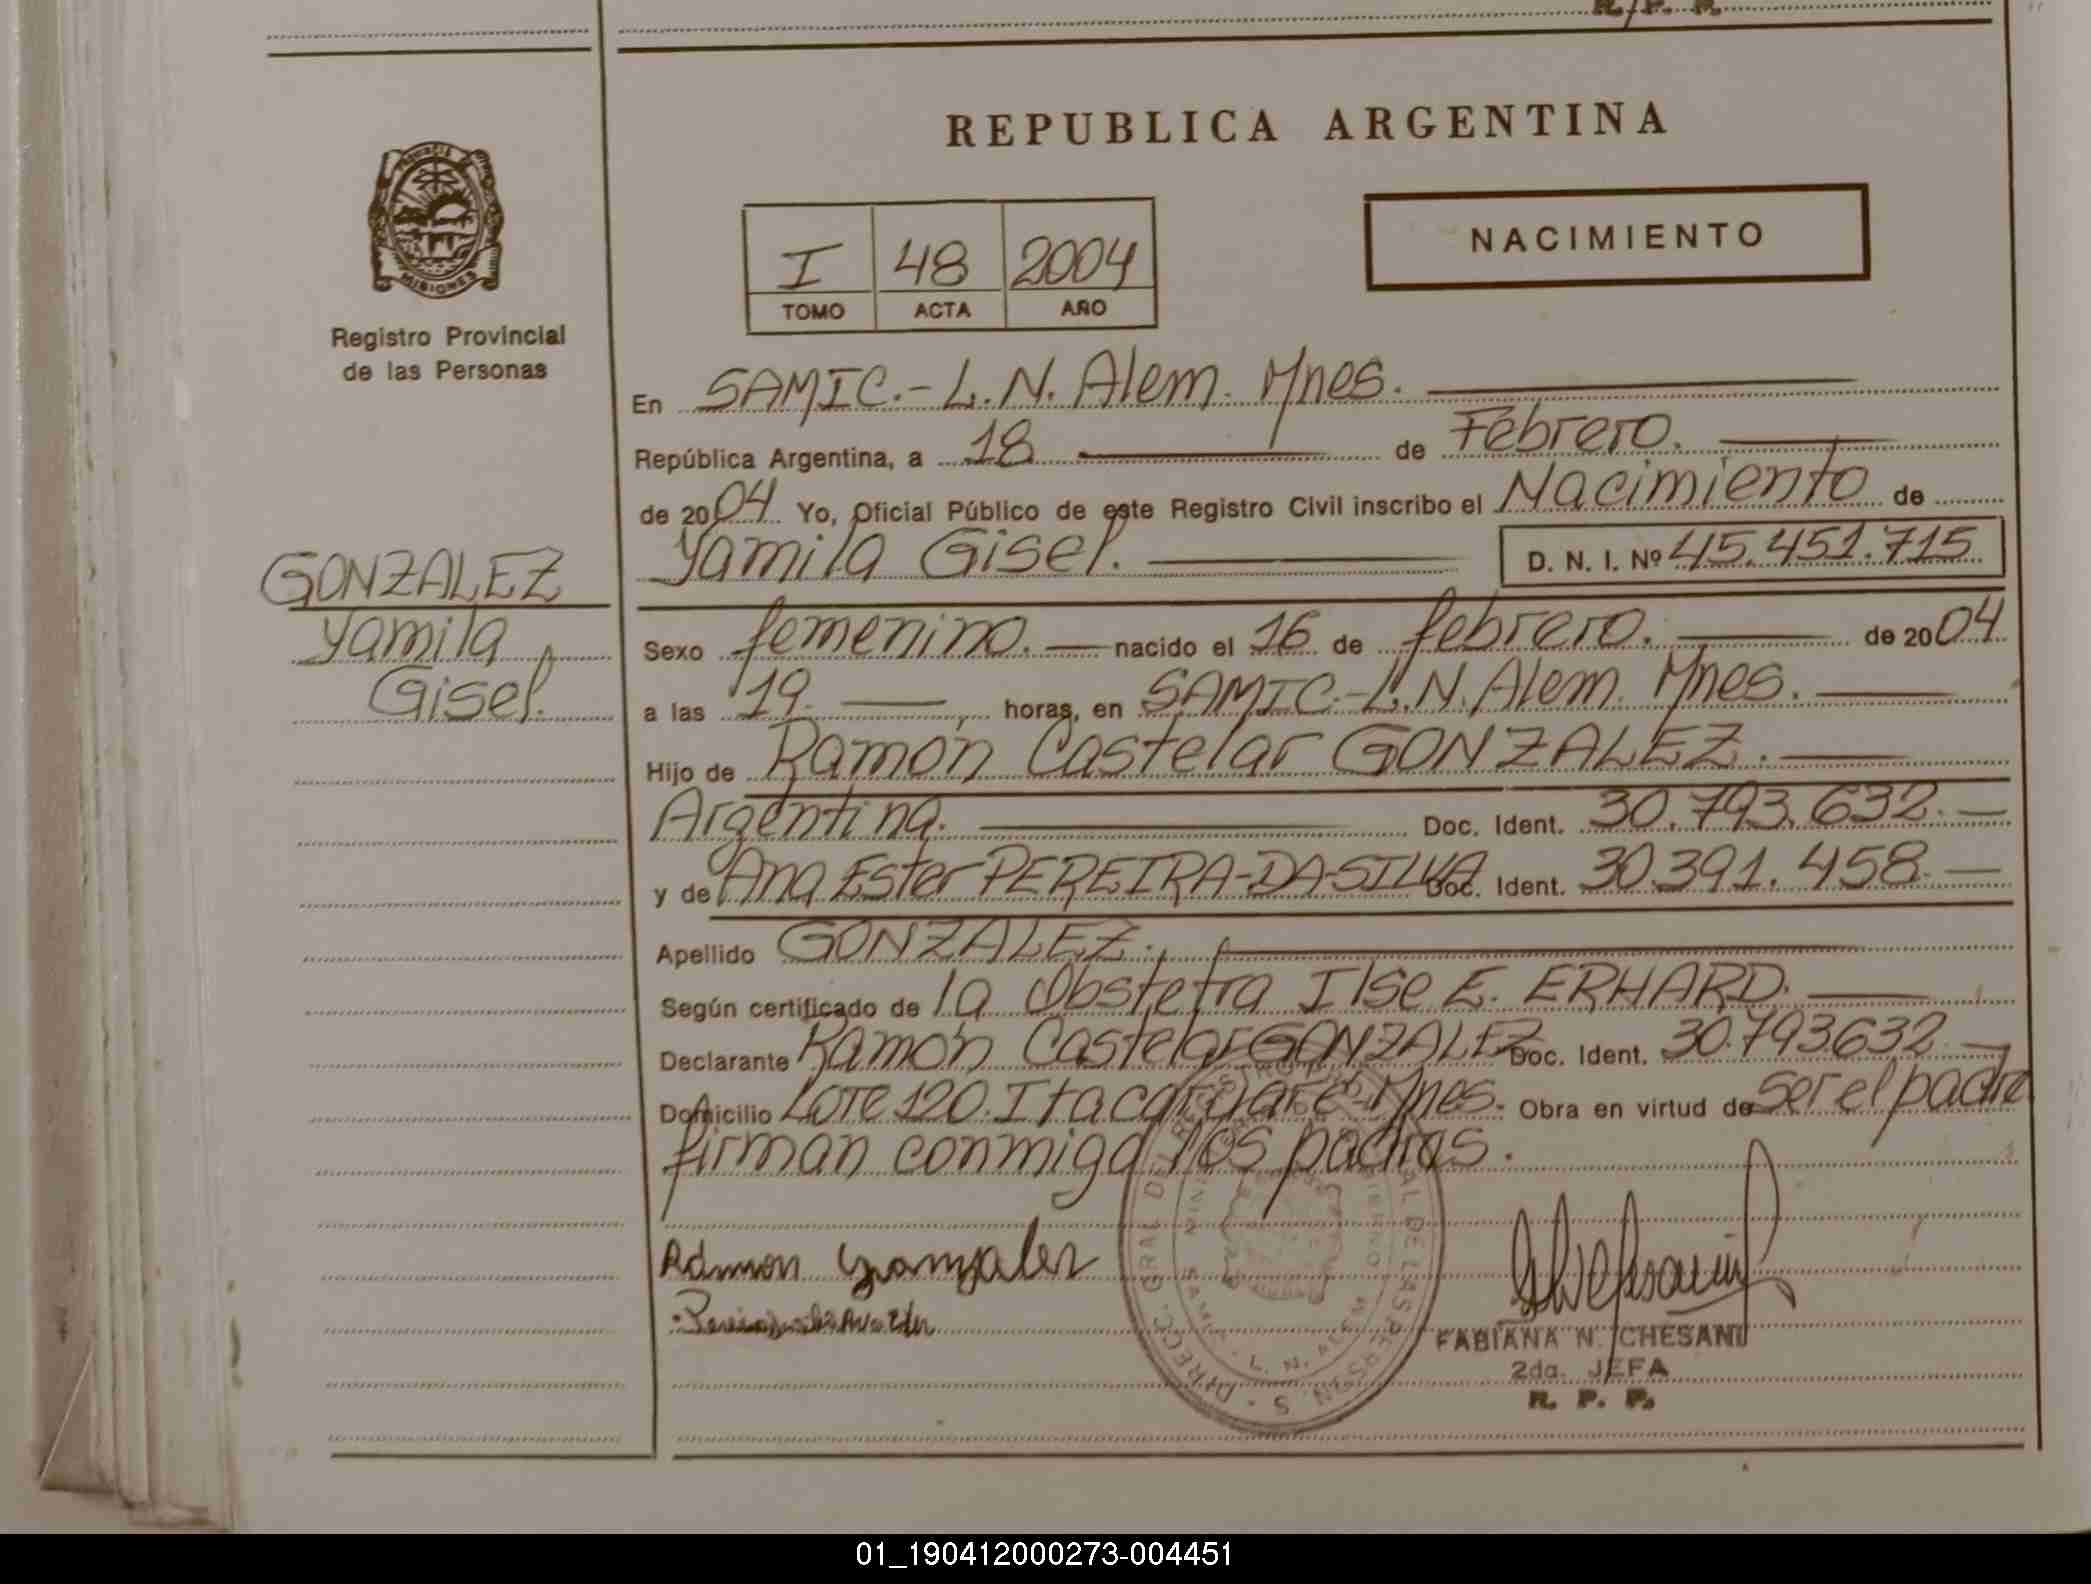 R. P. P.
REPUBLICA ARGENTINA
PROVINCIA DE
MISIONES
Registro Provincial
de las Personas
I 48 2004
TOMO ACTA AÑO
NACIMIENTO
En SAMIC.- L.N. Alem. Mnes.
República Argentina, a 18 de Febrero.
de 2004 Yo, Oficial Público de este Registro Civil inscribo el Nacimiento de
Yamila Gisel. D. N. I. Nº 45.451.715
GONZALEZ
Yamila
Gisel.
Sexo femenino. nacido el 16 de febrero. de 2004
a las 19. horas, en SAMIC.-L.N. Alem. Mnes.
Hijo de Ramón Castelar GONZALEZ.
Argentina. Doc. Ident. 30.793.632.
y de Ana Ester PEREIRA-DA-SILVA Doc. Ident. 30.391.458.
Apellido GONZALEZ.
Según certificado de la Obstetra Ilse E. ERHARD.
Declarante Ramón Castelar GONZALEZ Doc. Ident. 30.793632
Domicilio Lote 120. Itacaruare Mnes. Obra en virtud de ser el padre
firman conmigo los padres.
Ramon Gonzalez
FABIANA N. CHESANI
2da. JEFA
R. P. P.
01_190412000273-004451